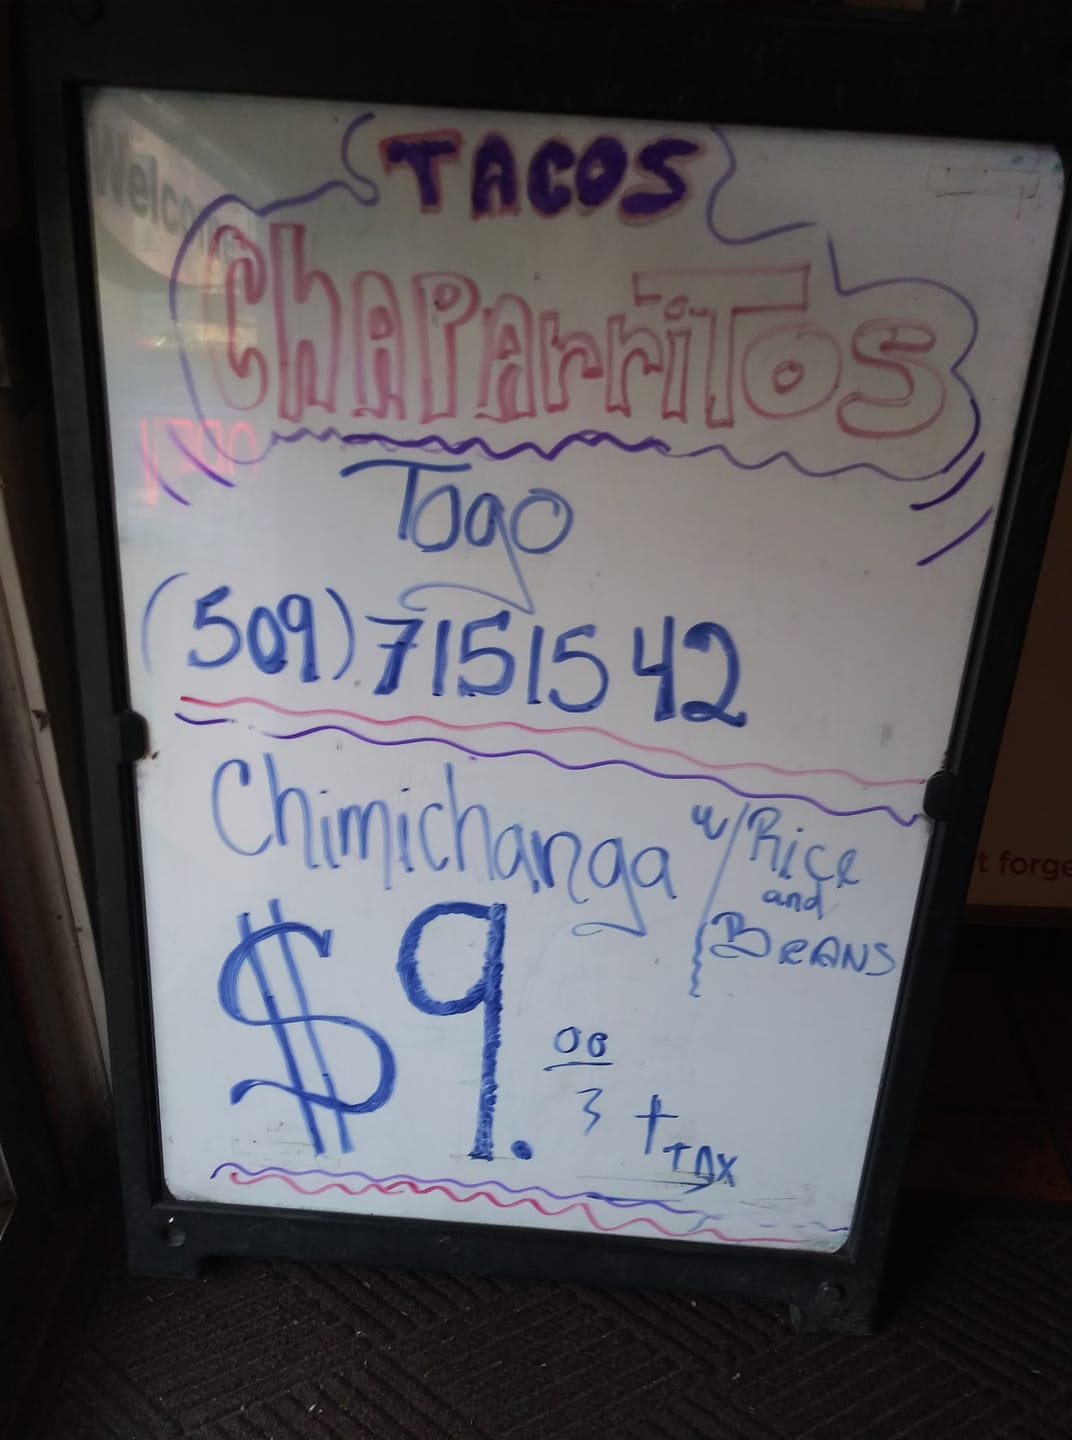 Welcome
TACOS
ChAPArriTos
Togo
(509) 7151542
Chimichanga w/Rice
and
BeANS
$9.
00
+
TAX
t forge